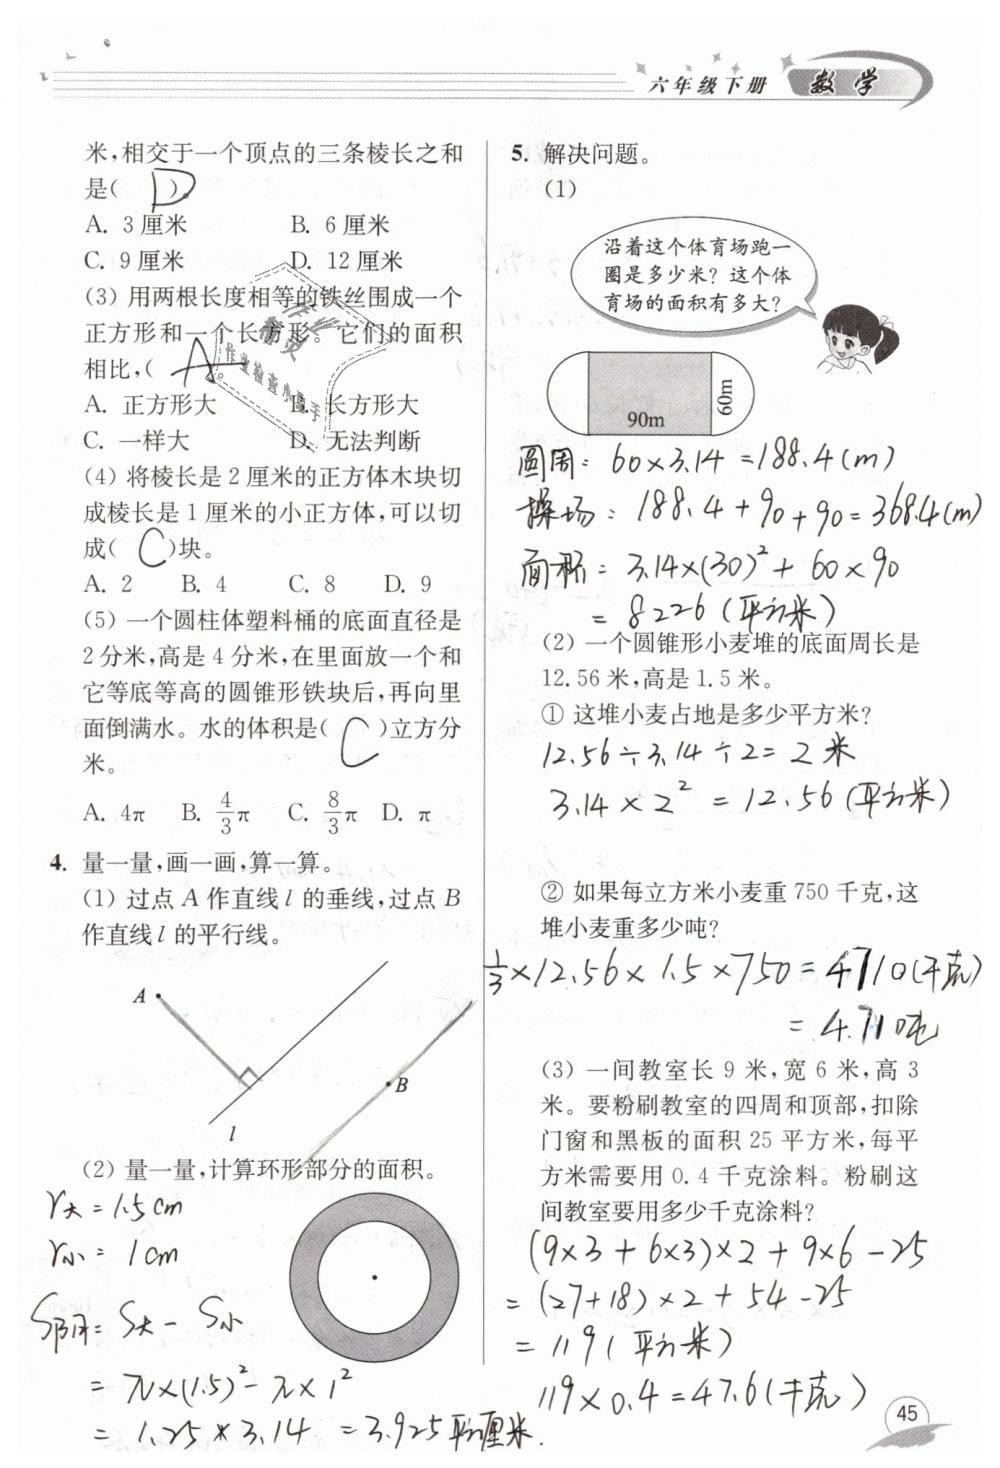 六年级下册 数学
米,相交于一个顶点的三条棱长之和
是( D )。
A. 3厘米 B. 6厘米
C. 9厘米 D. 12厘米
(3) 用两根长度相等的铁丝围成一个
正方形和一个长方形。它们的面积
相比,( A )。
A. 正方形大 B. 长方形大
C. 一样大 D. 无法判断
(4) 将棱长是2厘米的正方体木块切
成棱长是1厘米的小正方体,可以切
成( C )块。
A. 2 B. 4 C. 8 D. 9
(5) 一个圆柱体塑料桶的底面直径是
2分米,高是4分米,在里面放一个和
它等底等高的圆锥形铁块后,再向里
面倒满水。水的体积是( C )立方分
米。
A. 4π B. 4/3π C. 8/3π D. π
4. 量一量,画一画,算一算。
(1) 过点A作直线l的垂线,过点B
作直线l的平行线。
A
B
l
(2) 量一量,计算环形部分的面积。
r大 = 1.5cm
r小 = 1cm
S阴 = S大 - S小
= π×(1.5)² - π×1²
= 1.25×3.14 = 3.925平方厘米.
5. 解决问题。
(1)
沿着这个体育场跑一
圈是多少米?这个体
育场的面积有多大?
90m
60m
圆周: 60×3.14 = 188.4(m)
操场: 188.4 + 90 + 90 = 368.4(m)
面积 = 3.14×(30)² + 60×90
= 8226(平方米)
(2) 一个圆锥形小麦堆的底面周长是
12.56米,高是1.5米。
① 这堆小麦占地是多少平方米?
12.56÷3.14÷2 = 2米
3.14×2² = 12.56(平方米)
② 如果每立方米小麦重750千克,这
堆小麦重多少吨?
1/3×12.56×1.5×750 = 4710(千克)
= 4.71吨
(3) 一间教室长9米,宽6米,高3
米。要粉刷教室的四周和顶部,扣除
门窗和黑板的面积25平方米,每平
方米需要用0.4千克涂料。粉刷这
间教室要用多少千克涂料?
(9×3 + 6×3)×2 + 9×6 - 25
= (27+18)×2 + 54 - 25
= 119(平方米)
119×0.4 = 47.6(千克)
45
作业
精灵
作业检查小助手